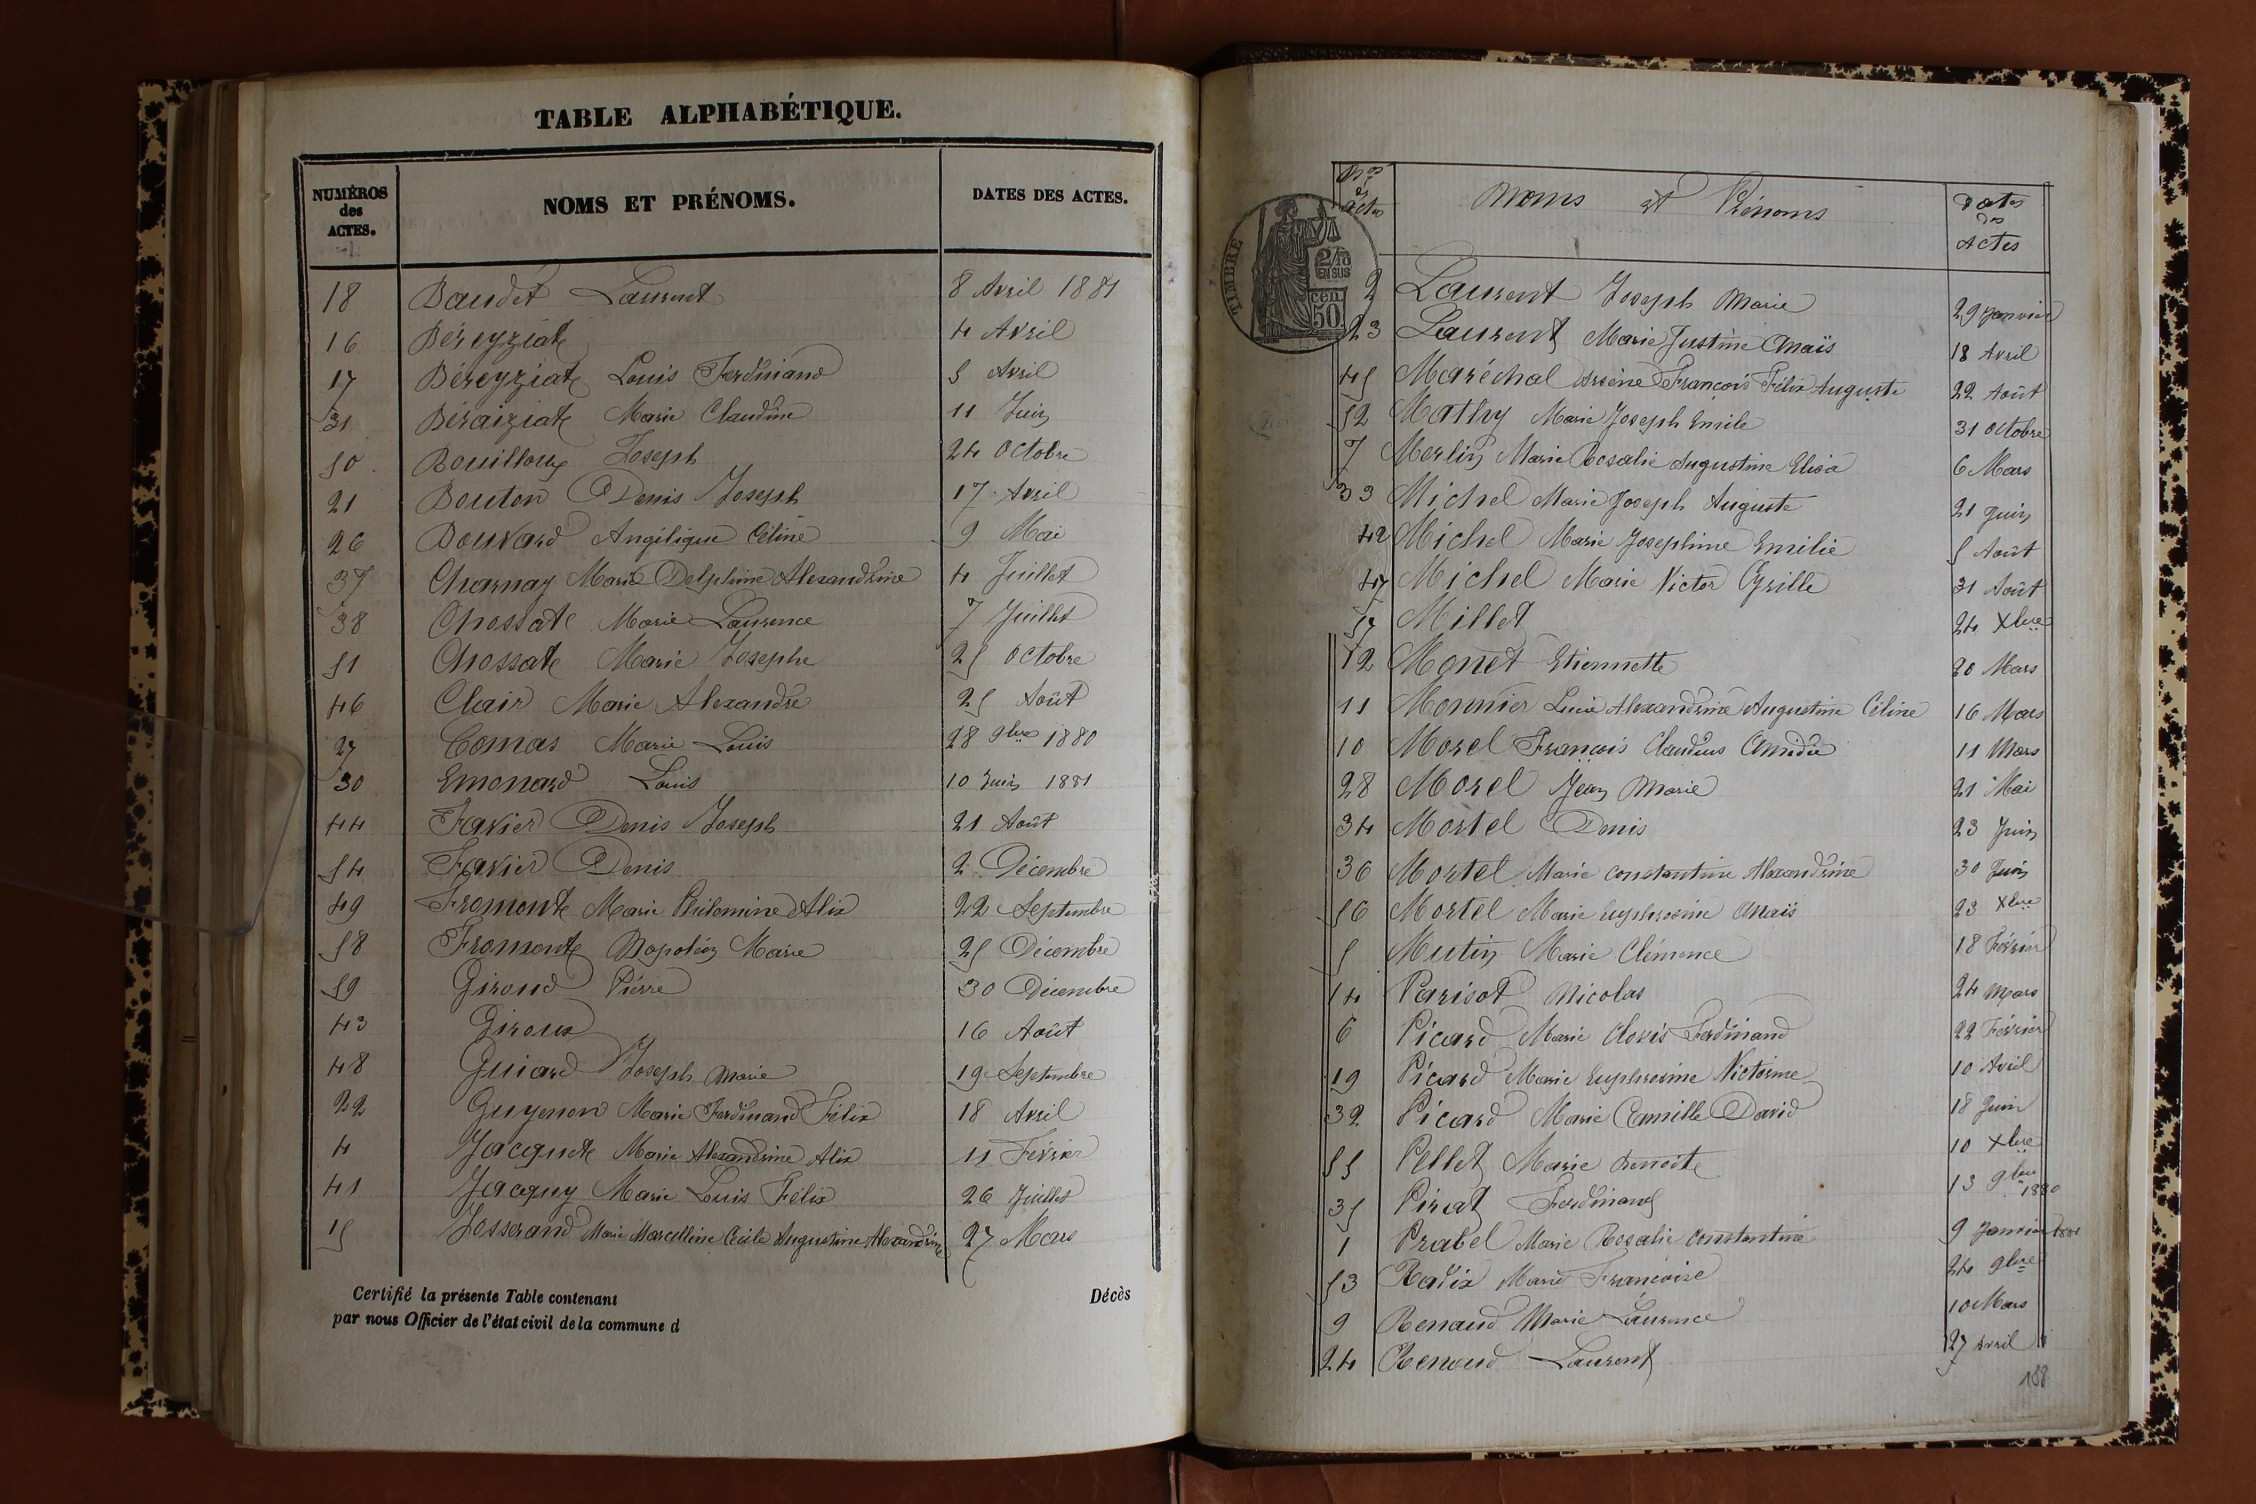 TABLE ALPHABÉTIQUE.
NUMÉROS des ACTES. NOMS ET PRÉNOMS. DATES DES ACTES.
18 Baudet Laurent 8 Avril 1881
16 Béreyziat 4 Avril
17 Béreyziat Louis Ferdinand 5 Avril
31 Béraiziat Marie Claudine 11 Juin
50 Bouilloux Joseph 24 Octobre
21 Bouton Denis Joseph 17 Avril
26 Bouvard Angélique Céline 9 Mai
37 Charnay Marie Delphine Alexandrine 4 Juillet
38 Chossat Marie Laurence 7 Juillet
51 Chossat Marie Josephe 25 Octobre
46 Clair Marie Alexandre 25 Août
27 Comas Marie Louis 28 9bre 1880
30 Emonard Louis 10 Juin 1881
44 Favier Denis Joseph 21 Août
54 Favier Denis 2 Décembre
49 Fromont Marie Philomine Alix 22 Septembre
58 Fromont Napoléon Marie 25 Décembre
59 Giroud Pierre 30 Décembre
43 Giroux 16 Août
48 Guiard Joseph Marie 19 Septembre
22 Guyenon Marie Ferdinand Félix 18 Avril
4 Jacquet Marie Alexandrine Alix 11 Février
41 Jacquy Marie Louis Félix 26 Juillet
15 Josserand Marie Marcelline Cécile Augustine Alexandrine 27 Mars
Certifié la présente Table contenant Décès
par nous Officier de l'état civil de la commune d
Nos des Actes Noms et Prénoms Dates des Actes
TIMBRE
2/10 EN SUS
50 cen.
2 Laurent Joseph Marie 29 Janvier
23 Laurent Marie Justine Anaïs 18 Avril
45 Maréchal Arsène François Félix Auguste 22 Août
52 Mathy Marie Joseph Emile 31 Octobre
7 Merlin Marie Rosalie Augustine Elisa 6 Mars
33 Michel Marie Joseph Auguste 21 Juin
42 Michel Marie Josephine Emilie 5 Août
47 Michel Marie Victor Cyrille 31 Août
57 Millet 24 Xbre
12 Monet Etiennette 20 Mars
11 Monnier Lucie Alexandrine Augustine Céline 16 Mars
10 Morel François Claudius Amédée 11 Mars
28 Morel Jean Marie 21 Mai
34 Mortel Denis 23 Juin
36 Mortel Marie Constantine Alexandrine 30 Juin
56 Mortel Marie Euphrosine Anaïs 23 Xbre
5 Mutin Marie Clémence 18 Février
14 Parisot Nicolas 24 Mars
6 Picard Marie Clovis Ferdinand 22 Février
19 Picard Marie Euphrosine Victorine 10 Avril
32 Picard Marie Camille David 18 Juin
55 Pellet Marie Benoite 10 Xbre
35 Pirat Ferdinand 13 9bre 1880
1 Prabel Marie Rosalie Constantine 9 Janvier 1881
53 Radix Marie Françoise 24 9bre
9 Renaud Marie Laurence 10 Mars
24 Renoud Laurent 27 Avril
188